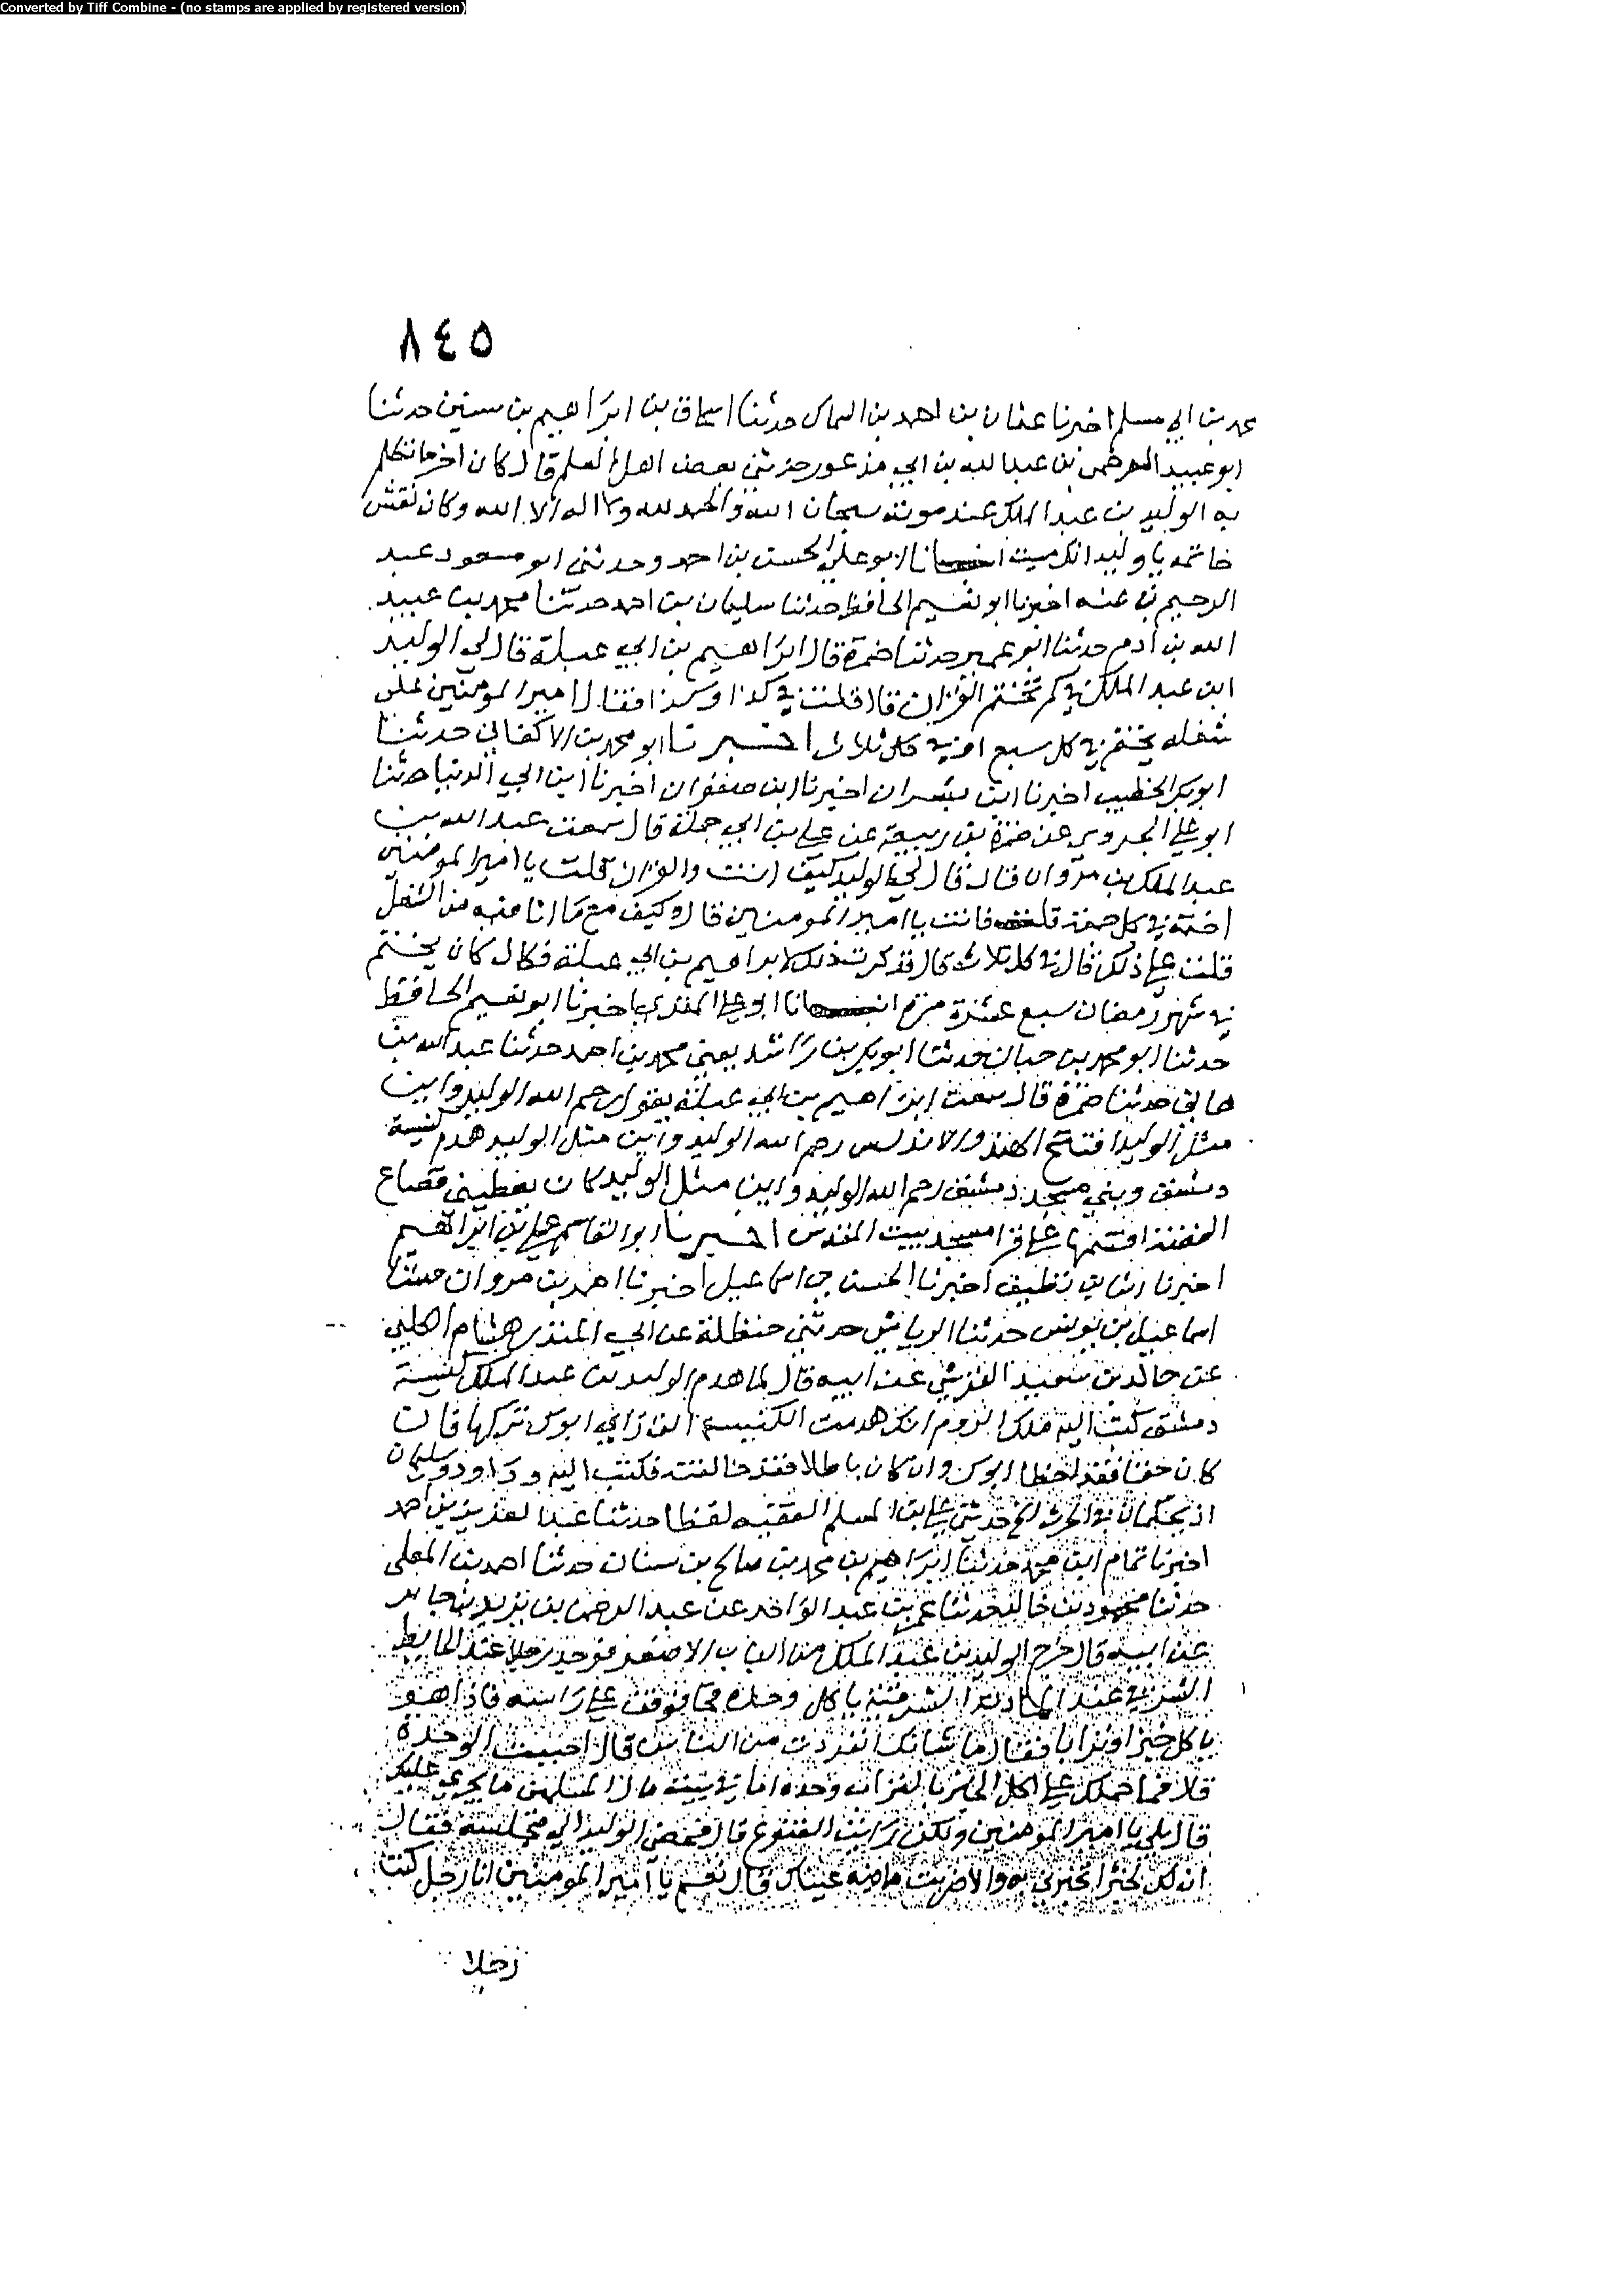 Converted by Tiff Combine - (no stamps are applied by registered version)
٨٤٥
محمد بن ابي مسلم اخبرنا عثمان بن احمد بن السماك حدثنا اسحاق بن ابراهيم بن سنين حدثنا
ابو عبيد الرحمن بن عبد الله بن ابي مذعور حدثني بعض اهل العلم قال كان اخر ما تكلم
به الوليد بن عبد الملك عند موته سبحان الله والحمد لله ولا اله الا الله وكان نقش
خاتمه يا وليد انك ميت انا ابو علي الحسن بن احمد وحدثني ابو مسعود عبد
الرحيم بن عنه اخبرنا ابو نعيم الحافظ حدثنا سليمان بن احمد حدثنا محمد بن عبيد
الله بن ادم حدثنا ابو عمير حدثنا ضمرة قال ابراهيم بن ابي عبلة قال لي الوليد
ابن عبد الملك في كم تختم القران قال قلت في كذا وكذا فقال امير المومنين على
شغله يختم في كل سبع او في كل ثلاث اخبرنا ابو محمد بن الاكفاني حدثنا
ابو بكر الخطيب اخبرنا ابن بشران اخبرنا ابن صفوان اخبرنا ابن ابي الدنيا حدثنا
ابو علي الجروي عن ضمرة بن ربيعة عن علي بن ابي حملة قال سمعت عبد الله بن
عبد الملك بن مروان قال قال لي الوليد كيف انت والقران قلت يا امير المومنين
اختمه في كل جمعة قلت فانت يا امير المومنين قال وكيف مع ما انا فيه من الشغل
قلت علي ذلك قال في كل ثلاث قال فذكرت ذلك لابراهيم بن ابي عبلة فقال كان يختم
في شهر رمضان سبع عشرة مرة انا ابو علي المقدي اخبرنا ابو نعيم الحافظ
حدثنا ابو محمد بن حيان حدثنا ابو بكر بن راشد يعني محمد بن احمد حدثنا عبد الله بن
هاني حدثنا ضمرة قال سمعت ابراهيم بن ابي عبلة يقول رحم الله الوليد واين
مثل الوليد افتتح الهند والاندلس رحم الله الوليد واين مثل الوليد هدم كنيسة
دمشق وبني مسجد دمشق رحم الله الوليد واين مثل الوليد كان يعطيني قصاع
الفضة اقسمها علي قرا مسجد بيت المقدس اخبرنا ابو القاسم علي بن ابراهيم
اخبرنا رشا بن نظيف اخبرنا الحسن بن اسماعيل اخبرنا احمد بن مروان حدثنا
اسماعيل بن يونس حدثنا الرياشي حدثني حنظلة عن ابي المنذر هشام الكلبي
عن خالد بن سعيد القرشي عن ابيه قال لما هدم الوليد بن عبد الملك كنيسة
دمشق كتب اليه ملك الروم انك هدمت الكنيسة التي راي ابوك تركها فان
كان حقا فقد اخطا ابوك وان كان باطلا فقد خالفته فكتب اليه وداود وسليمان
اذ يحكمان في الحرث الخ حدثني علي بن المسلم الفقيه لفظا حدثنا عبد العزيز بن احمد
اخبرنا تمام ابن محمد حدثنا ابراهيم بن محمد بن صالح بن سنان حدثنا احمد بن المعلى
حدثنا محمود بن خالد حدثنا عمر بن عبد الواحد عن عبد الرحمن بن يزيد بن جابر
عن ابيه قال خرج الوليد بن عبد الملك من الباب الاصغر فوجد رجلا عند الحايط
الشرقي عند الماذنة الشرقية ياكل وحده فجا فوقف علي راسه فاذا هو
ياكل خبزا وترابا فقال ما شانك انفردت من الناس قال احببت الوحدة
قلا فما حملك علي اكل الخبز بالتراب وحده اما في بيت مال المسلمين ما يجري عليك
قال بلي يا امير المومنين ولكن رايت القنوع قال فمضي الوليد الي مجلسه فقال
ان لك لخبرا تخبرني به والا ضربت ما فيه عيناك قال نعم يا امير المومنين انا رجل كنت
رجلا